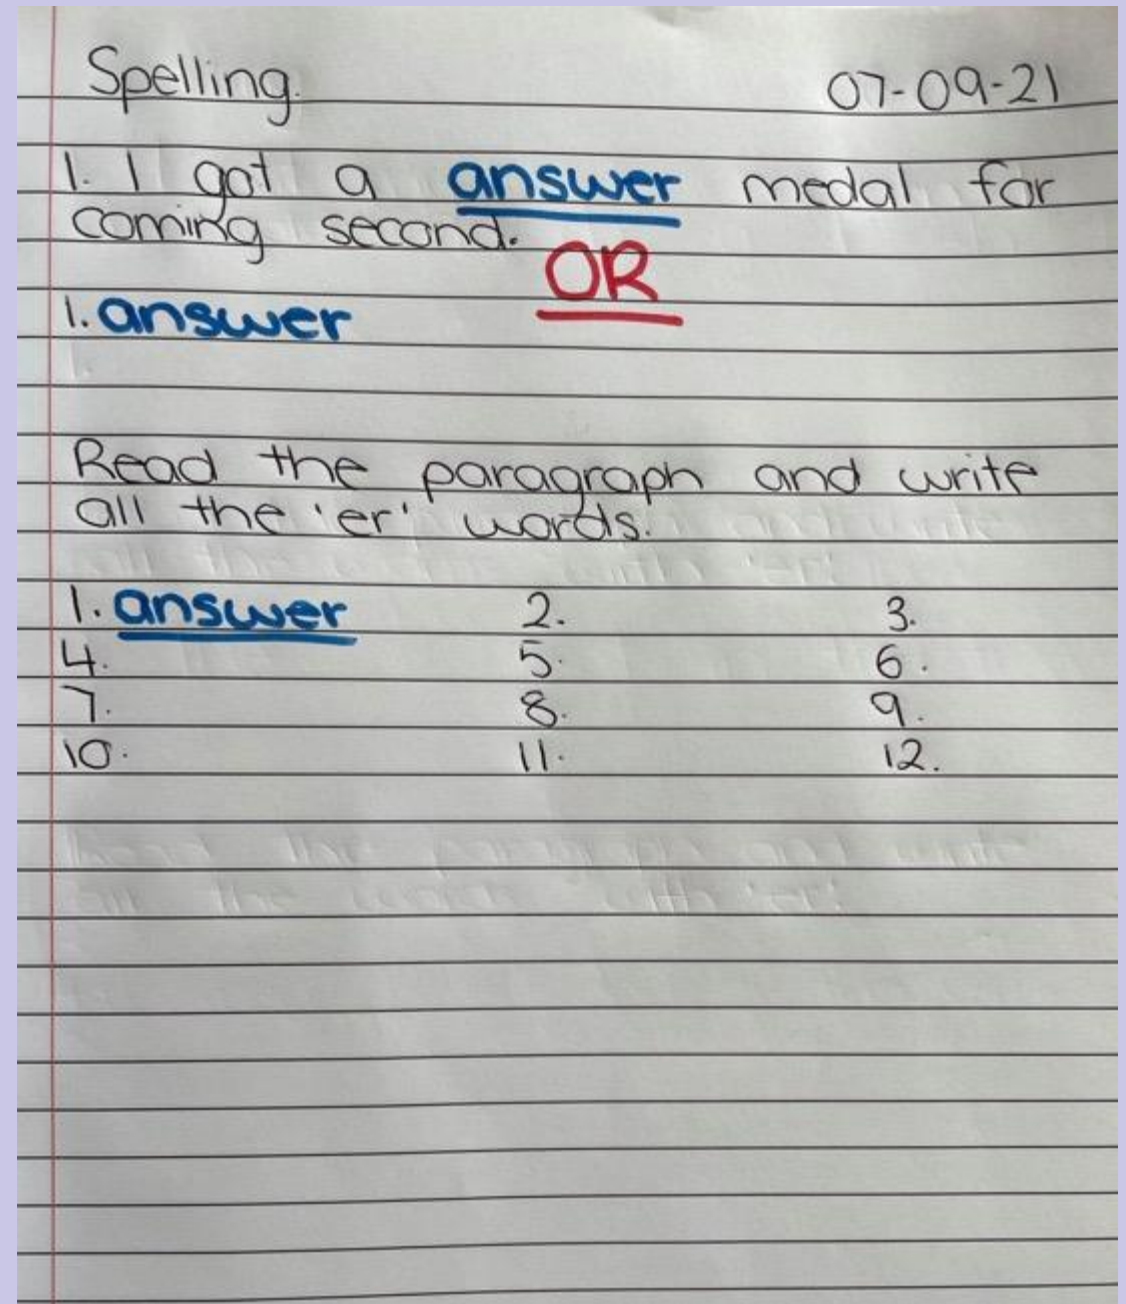 Spelling. 07-09-21
1. I got a answer medal for
coming second.
OR
1. answer
Read the paragraph and write
all the 'er' words.
1. answer 2. 3.
4. 5. 6.
7. 8. 9.
10. 11. 12.